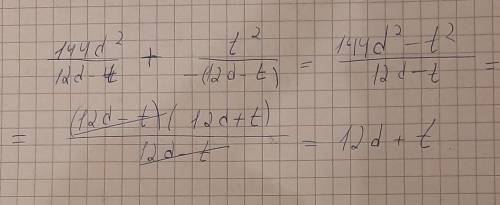 144d²/(12d-t) + t²/(-(12d-t)) = (144d²-t²)/(12d-t) =
= (12d-t)(12d+t)/(12d-t) = 12d+t